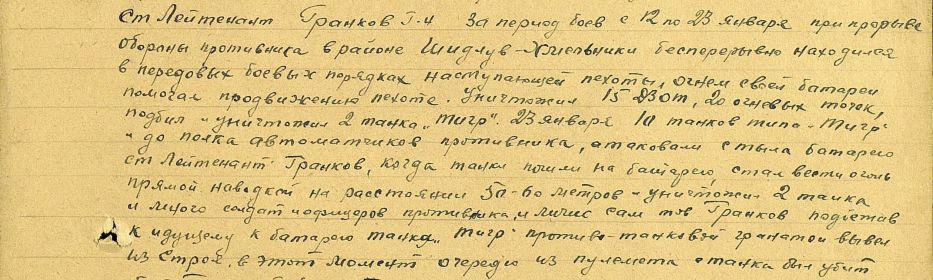 ст Лейтенант Гранков Г-И За период боев с 12 по 23 января при прорыве
обороны противника в районе Шидлув-Хмельники бесперерывно находился
в передовых боевых порядках наступающей пехоты, огнем своей батареи
помогал продвижению пехоте. Уничтожил 15 ДЗОт, 20 огневых точек,
подбил и уничтожил 2 танка "Тигр". 23 января 10 танков типа "Тигр"
и до полка автоматчиков противника, атаковали с тыла батарею
ст Лейтенант Гранков, когда танки пошли на батарею, стал вести огонь
прямой наводкой на расстоянии 50-60 метров и уничтожил 2 танка
и много солдат и офицеров противника, и лично сам тов Гранков подпустив
к идущему к батарею танку "Тигр" противо-танковой гранатой вывел
из строя, в этот момент очередью из пулемета с танка был убит